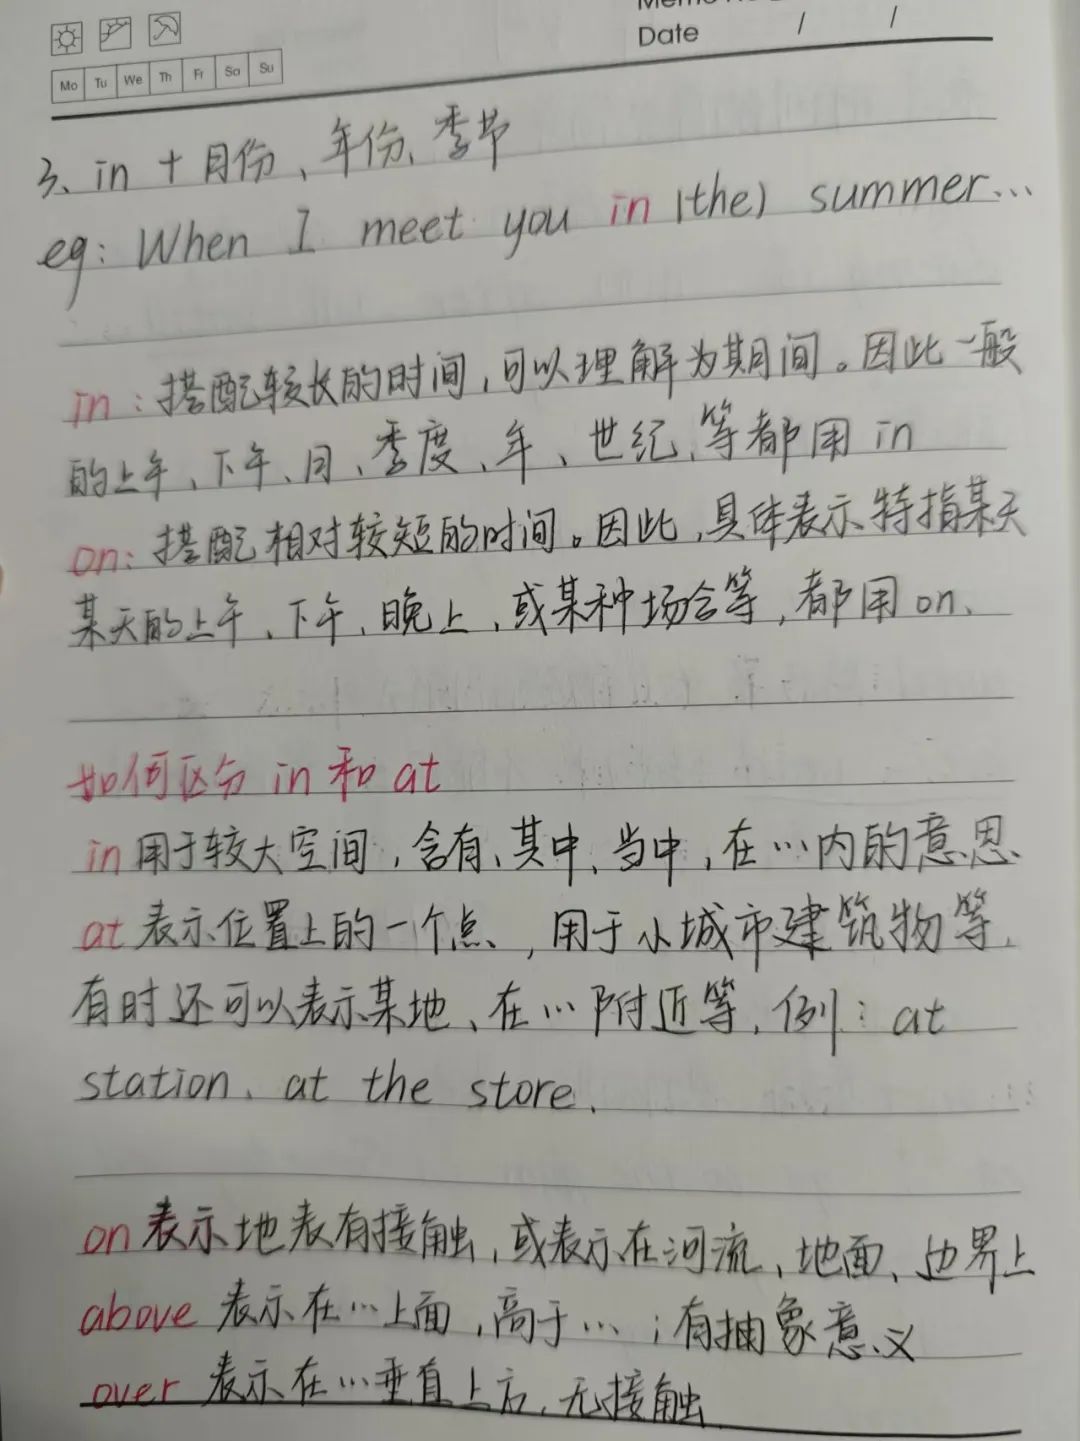 Date / /
Mo Tu We Th Fr Sa Su
3、in + 月份、年份、季节
eg: When I meet you in (the) summer...
in：搭配较长的时间，可以理解为期间。因此一般
的上午、下午、月、季度、年、世纪、等都用 in
on：搭配相对较短的时间。因此，具体表示特指某天
某天的上午、下午、晚上，或某种场合等，都用 on、
如何区分 in 和 at
in 用于较大空间，含有、其中、当中，在…内的意思、
at 表示位置上的一个点、，用于小城市建筑物等，
有时还可以表示某地、在…附近等，例：at
station、at the store、
on 表示地表有接触，或表示在河流、地面、边界上
above 表示在…上面，高于…；有抽象意义
over 表示在…垂直上方，无接触